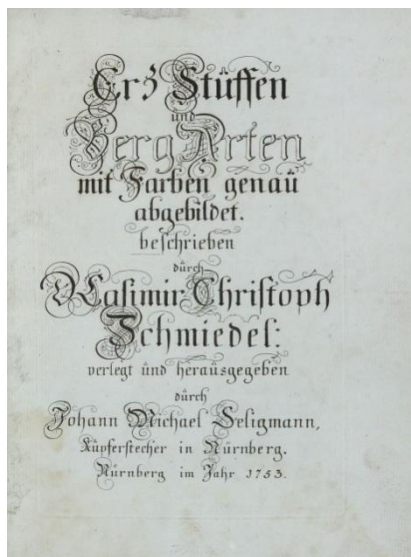 Ertz Stüffen
und
Berg Arten
mit Farben genaü
abgebildet.
beschrieben
dürch
Casimir Christoph
Schmiedel:
verlegt ünd heraüsgegeben
dürch
Johann Michael Seligmann,
Küpferstecher in Nürnberg.
Nürnberg im Jahr 1753.